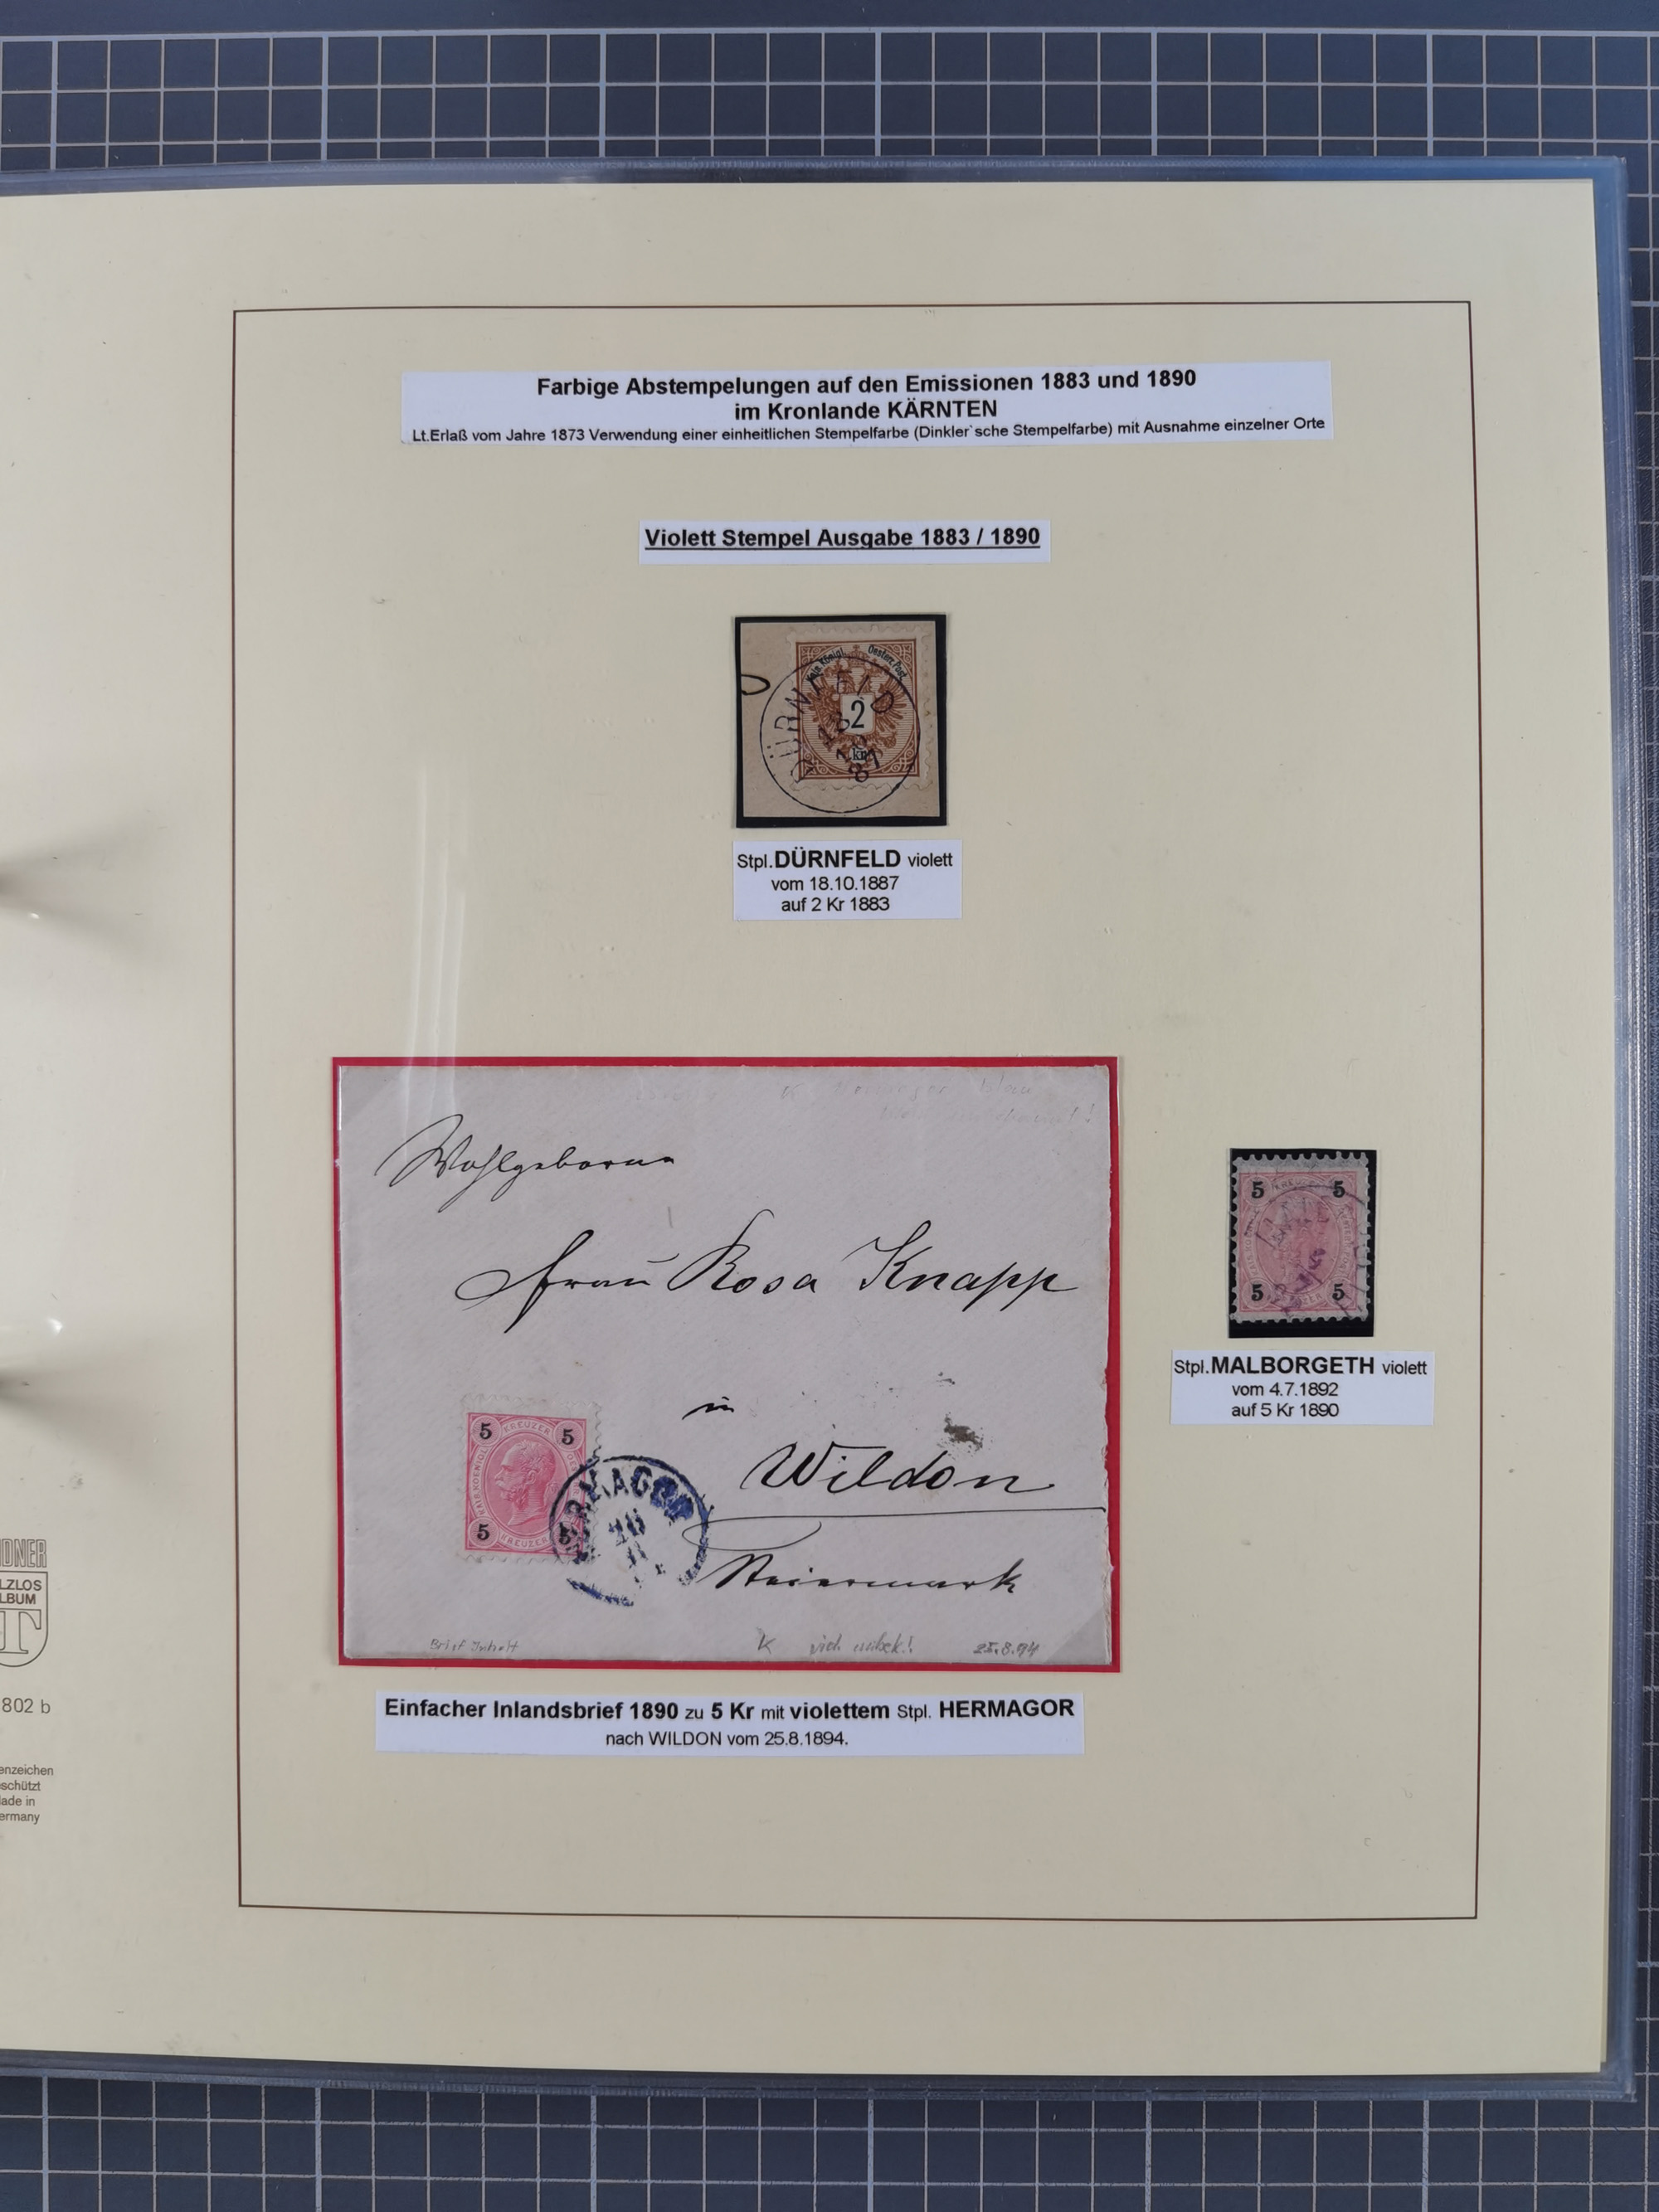 Farbige Abstempelungen auf den Emissionen 1883 und 1890
im Kronlande KÄRNTEN
Lt.Erlaß vom Jahre 1873 Verwendung einer einheitlichen Stempelfarbe (Dinkler`sche Stempelfarbe) mit Ausnahme einzelner Orte
Violett Stempel Ausgabe 1883 / 1890
Kais. Königl. Oesterr. Post
2
kr
DÜRNFELD
18
10
87
Stpl.DÜRNFELD violett
vom 18.10.1887
auf 2 Kr 1883
Wohlgeboren
Frau Rosa Knapp
in
Wildon
Steiermark
5 KREUZER 5
5 KREUZER 5
HERMAGOR
Brief Inhalt
K
25.8.94
5 5
5 5
Stpl.MALBORGETH violett
vom 4.7.1892
auf 5 Kr 1890
Einfacher Inlandsbrief 1890 zu 5 Kr mit violettem Stpl. HERMAGOR
nach WILDON vom 25.8.1894.
DNER
LZLOS
LBUM
T
802 b
enzeichen
schützt
lade in
ermany